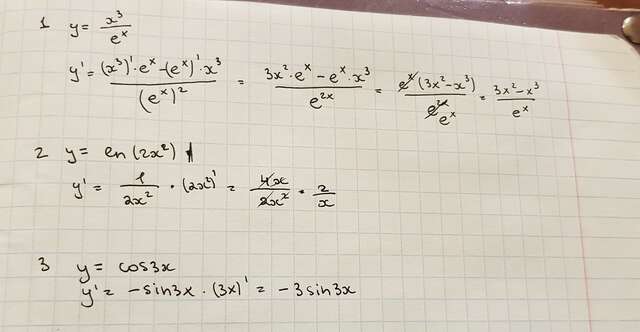 1 y = x³/eˣ
y' = ((x³)'·eˣ-(eˣ)'·x³)/(eˣ)² = (3x²·eˣ - eˣ·x³)/e²ˣ = (eˣ(3x²-x³))/(e²ˣ eˣ) = (3x²-x³)/eˣ
2 y = ln(2x²)
y' = 1/(2x²) · (2x²)' = 4x/(2x²) = 2/x
3 y = cos3x
y' = -sin3x · (3x)' = -3sin3x